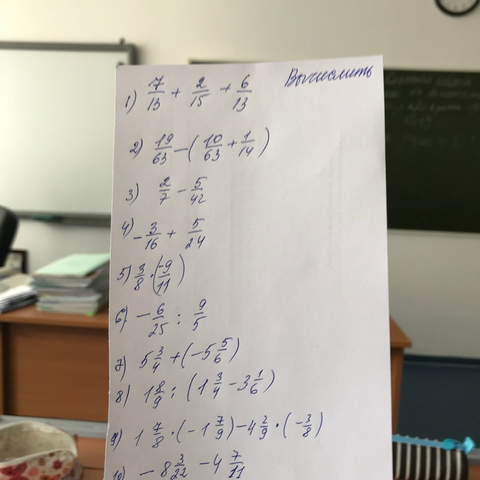 Вычислить
1) 7/13 + 2/15 + 6/13
2) 19/63 - (10/63 + 1/14)
3) 2/7 - 5/42
4) -3/16 + 5/24
5) 3/8 · (-9/11)
6) -6/25 : 9/5
7) 5 3/4 + (-5 5/6)
8) 1 8/9 : (1 3/4 - 3 1/6)
9) 1 7/8 · (-1 7/9) - 4 2/9 · (-3/8)
10) -8 3/22 - 4 7/11